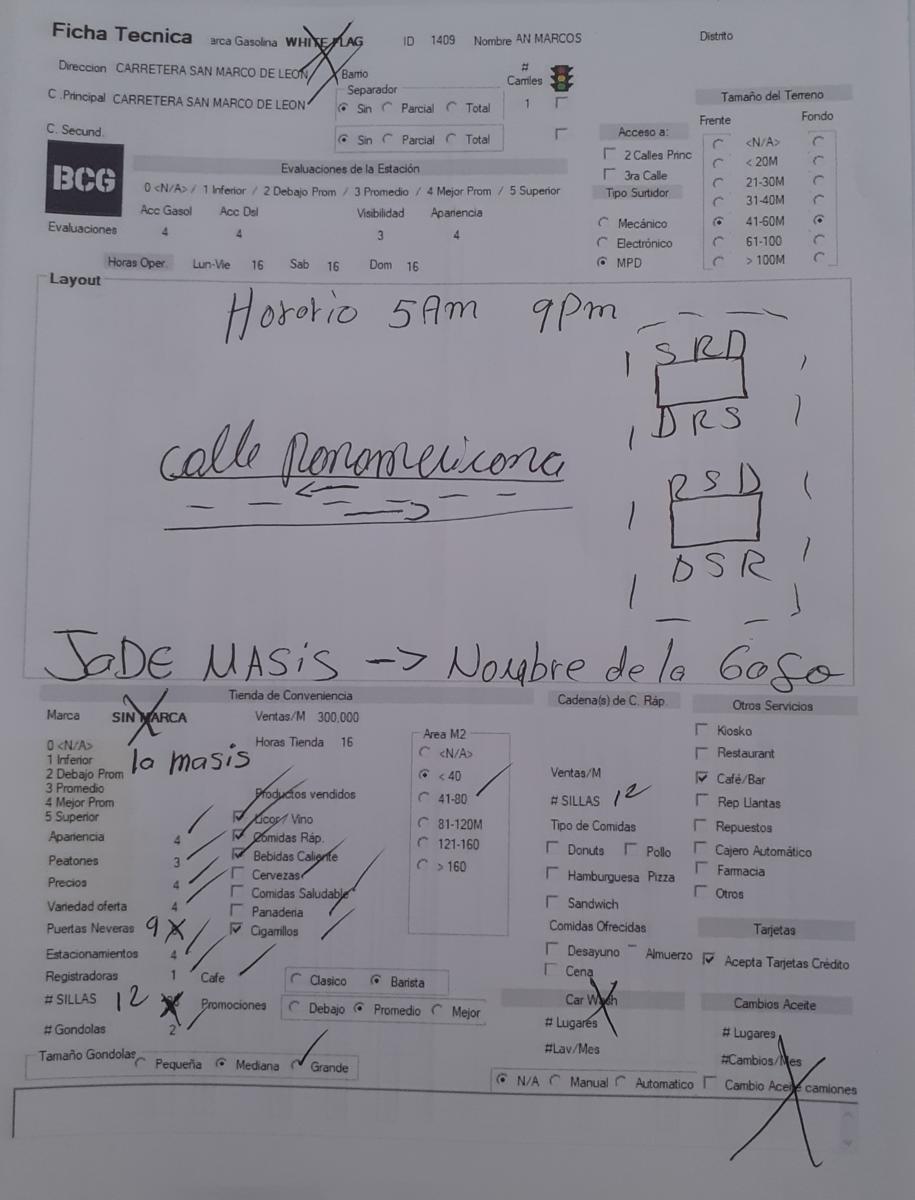 Ficha Tecnica arca Gasolina WHITE FLAG ID 1409 Nombre AN MARCOS Distrito
Direccion CARRETERA SAN MARCO DE LEON Barrio
C .Principal CARRETERA SAN MARCO DE LEON
Separador
# Carriles
Sin Parcial Total 1
C. Secund.
Sin Parcial Total
Acceso a:
2 Calles Princ
3ra Calle
Tipo Surtidor
Mecánico
Electrónico
MPD
Tamaño del Terreno
Frente Fondo
<N/A>
< 20M
21-30M
31-40M
41-60M
61-100
> 100M
BCG
Evaluaciones de la Estación
0 <N/A> / 1 Inferior / 2 Debajo Prom / 3 Promedio / 4 Mejor Prom / 5 Superior
Acc Gasol Acc Dsl Visibilidad Apariencia
Evaluaciones 4 4 3 4
Horas Oper. Lun-Vie 16 Sab 16 Dom 16
Layout
Horario 5Am 9Pm
SRD
DRS
calle Panamericana
RSD
DSR
JaDE MASiS -> Nombre de la Gaso
Tienda de Conveniencia
Marca SIN MARCA Ventas/M 300,000
Horas Tienda 16
la masis
0 <N/A>
1 Inferior
2 Debajo Prom
3 Promedio
4 Mejor Prom
5 Superior
Apariencia 4
Peatones 3
Precios 4
Variedad oferta 4
Puertas Neveras 9
Estacionamientos 4
Registradoras 1
# SILLAS 12
# Gondolas 2
Productos vendidos
Licor / Vino
Comidas Ráp.
Bebidas Caliente
Cervezas
Comidas Saludable
Panaderia
Cigarrillos
Cafe Clasico Barista
Promociones Debajo Promedio Mejor
Tamaño Gondolas Pequeña Mediana Grande
Area M2
<N/A>
< 40
41-80
81-120M
121-160
> 160
Cadena(s) de C. Ráp.
Ventas/M
# SILLAS 12
Tipo de Comidas
Donuts Pollo
Hamburguesa Pizza
Sandwich
Comidas Ofrecidas
Desayuno Almuerzo
Cena
Car Wash
# Lugares
#Lav/Mes
N/A Manual Automatico
Otros Servicios
Kiosko
Restaurant
Café/Bar
Rep Llantas
Repuestos
Cajero Automático
Farmacia
Otros
Tarjetas
Acepta Tarjetas Crédito
Cambios Aceite
# Lugares
#Cambios/Mes
Cambio Aceite camiones